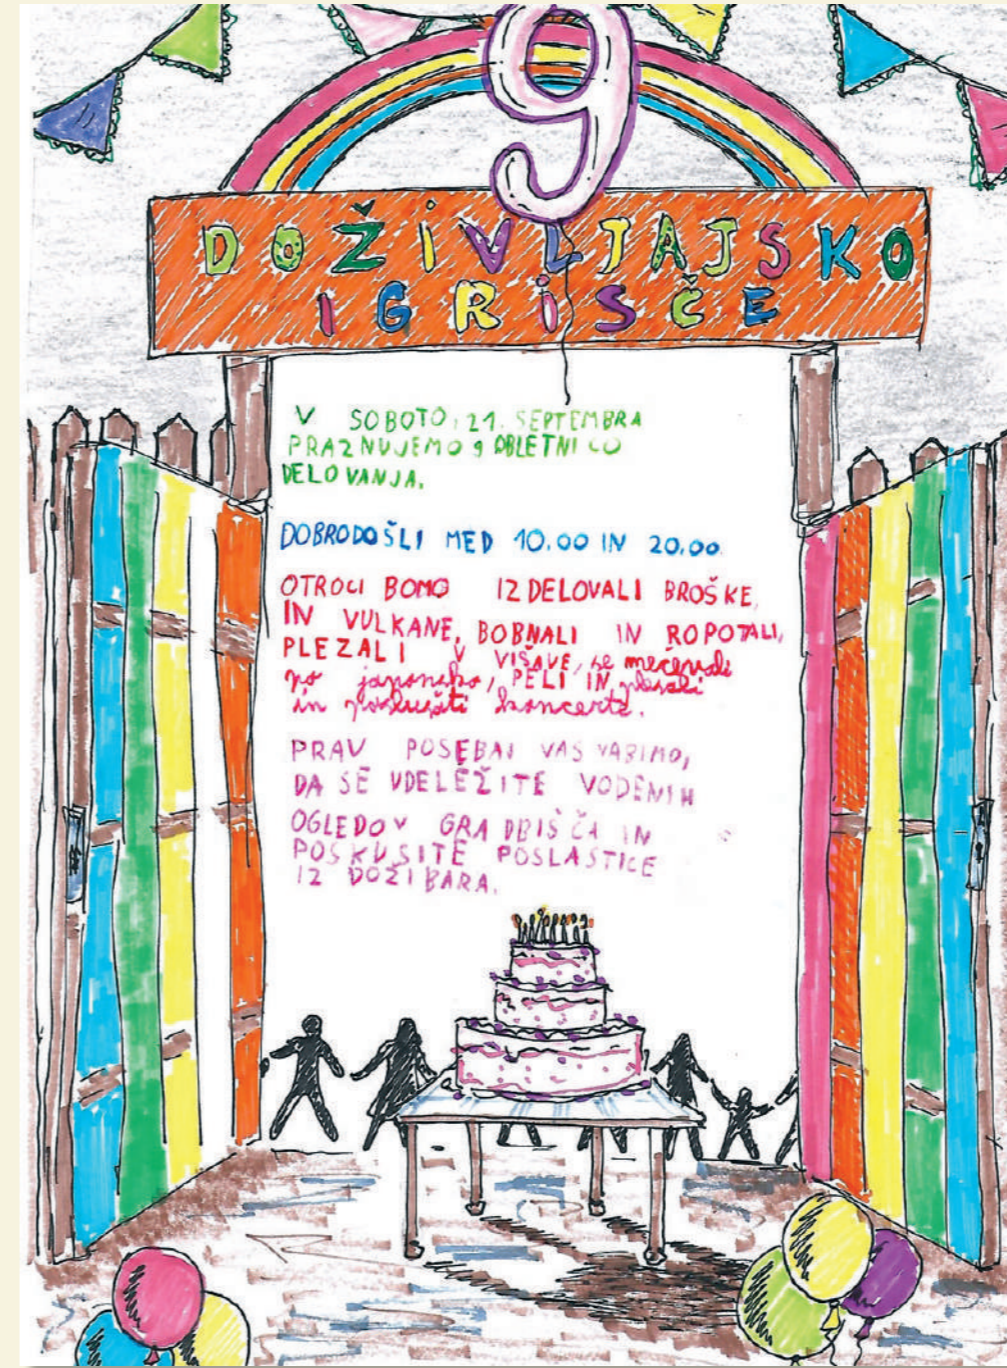 9
DOŽiVLJAJSKO
IGRiSČE
V SOBOTO, 21. SEPTEMBRA
PRAZNUJEMO 9 OBLETNICO
DELOVANJA.
DOBRODOŠLI MED 10.00 IN 20.00
OTROCI BOMO IZDELOVALI BROŠKE,
IN VULKANE, BOBNALI IN ROPOTALI,
PLEZALI V VIŠAVE, se mečevali
po japonsko, PELI IN plesali
in poslušati koncerte.
PRAV POSEBAJ VAS VABIMO,
DA SE UDELEŽITE VODENIH
OGLEDOV GRADBIŠČA IN
POSKUSITE POSLASTICE
IZ DOŽIBARA.